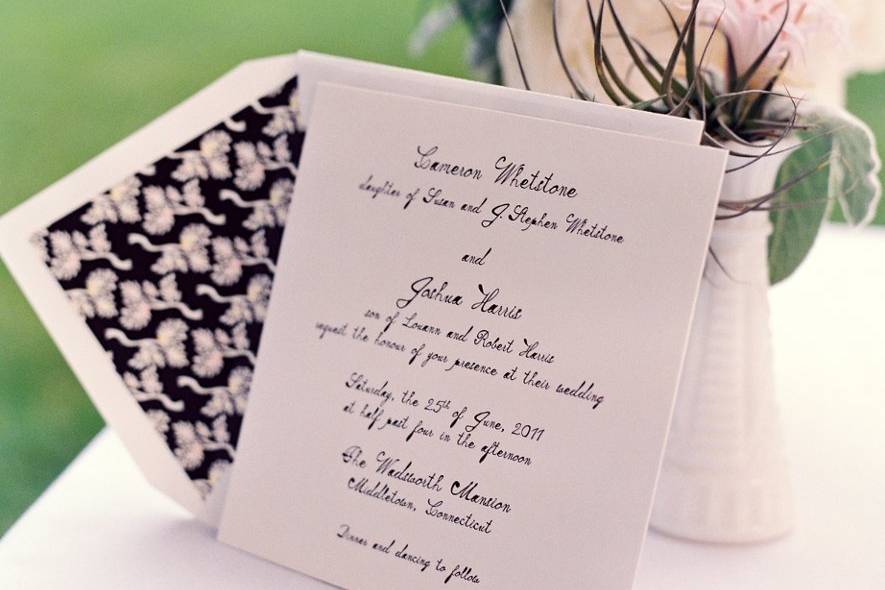 Cameron Whetstone
daughter of Susan and J. Stephen Whetstone
and
Joshua Harris
son of Louann and Robert Harris
request the honour of your presence at their wedding
Saturday, the 25th of June, 2011
at half past four in the afternoon
The Wadsworth Mansion
Middletown, Connecticut
Dinner and dancing to follow